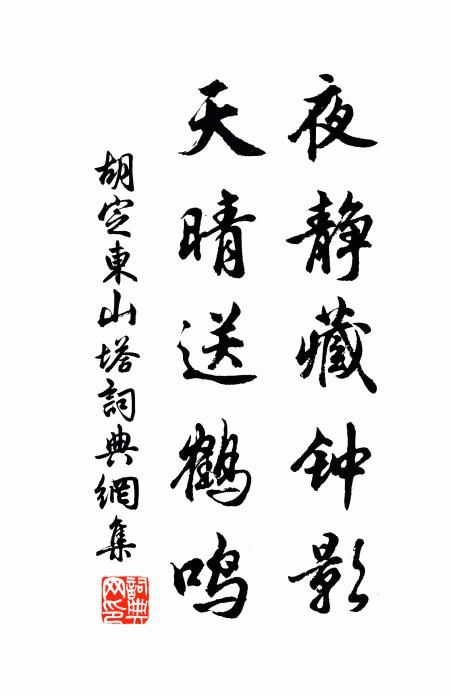 夜静藏钟影
天晴送鹤鸣
胡定東山塔詞典網集
詞典网印